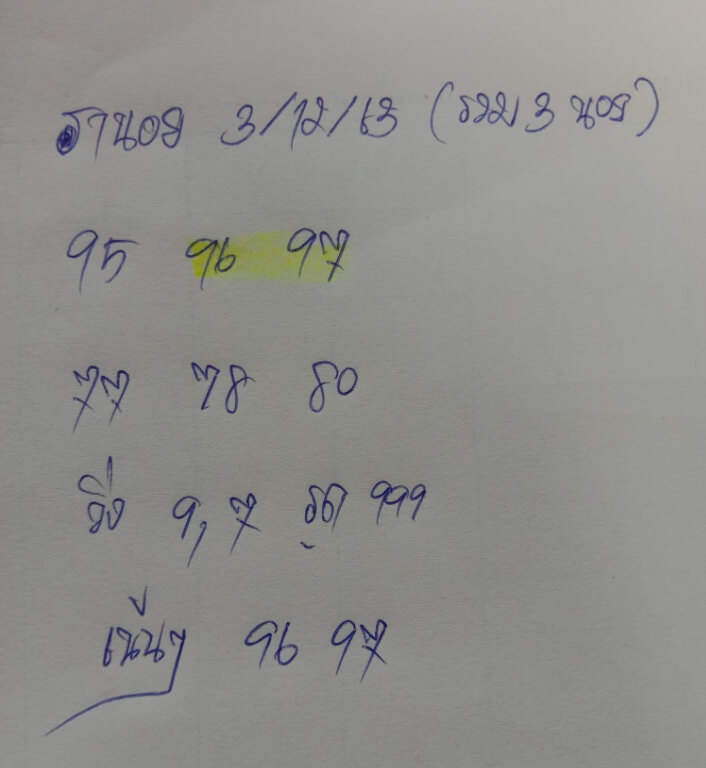 ฮานอย 3/12/63 (รวม 3 นอย)
95 96 97
77 78 80
วิ่ง 9,7 รูด 999
เน้นๆ 96 97